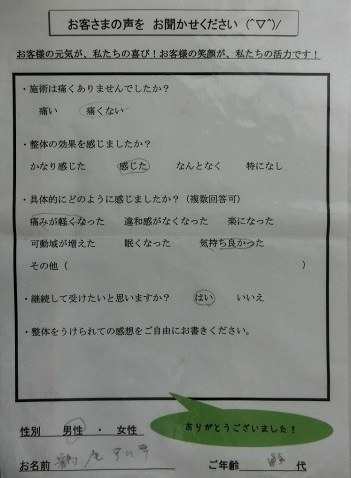 お客さまの声を お聞かせください (^▽^)/
お客様の元気が、私たちの喜び！お客様の笑顔が、私たちの活力です！
・施術は痛くありませんでしたか？
痛い 痛くない
・整体の効果を感じましたか？
かなり感じた 感じた なんとなく 特になし
・具体的にどのように感じましたか？（複数回答可）
痛みが軽くなった 違和感がなくなった 楽になった
可動域が増えた 眠くなった 気持ち良かった
その他（ ）
・継続して受けたいと思いますか？ はい いいえ
・整体をうけられての感想をご自由にお書きください。
ありがとうございました！
性別 男性 ・ 女性
お名前 ご年齢 代